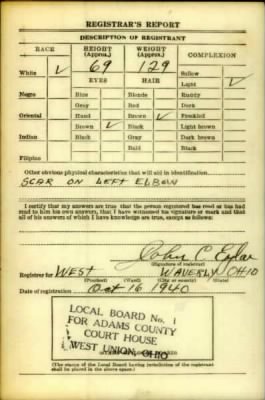 REGISTRAR'S REPORT
DESCRIPTION OF REGISTRANT
RACE HEIGHT (Approx.) WEIGHT (Approx.) COMPLEXION
White ✓ 69 129 Sallow
Light ✓
EYES HAIR
Negro Blue Blonde Ruddy
Gray Red Dark
Oriental Hazel Brown ✓ Freckled
Brown ✓ Black Light brown
Indian Black Gray Dark brown
Bald Black
Filipino
Other obvious physical characteristics that will aid in identification
SCAR ON LEFT ELBOW
I certify that my answers are true; that the person registered has read or has had
read to him his own answers; that I have witnessed his signature or mark and that
all of his answers of which I have knowledge are true, except as follows:
John C
(Signature of registrar)
Registrar for WEST WAVERLY OHIO
(Precinct) (Ward) (City or county) (State)
Date of registration Oct 16 1940
LOCAL BOARD No. 1
FOR ADAMS COUNTY
COURT HOUSE
WEST UNION, OHIO
(The stamp of the Local Board having jurisdiction of the registrant
shall be placed in the above space.)